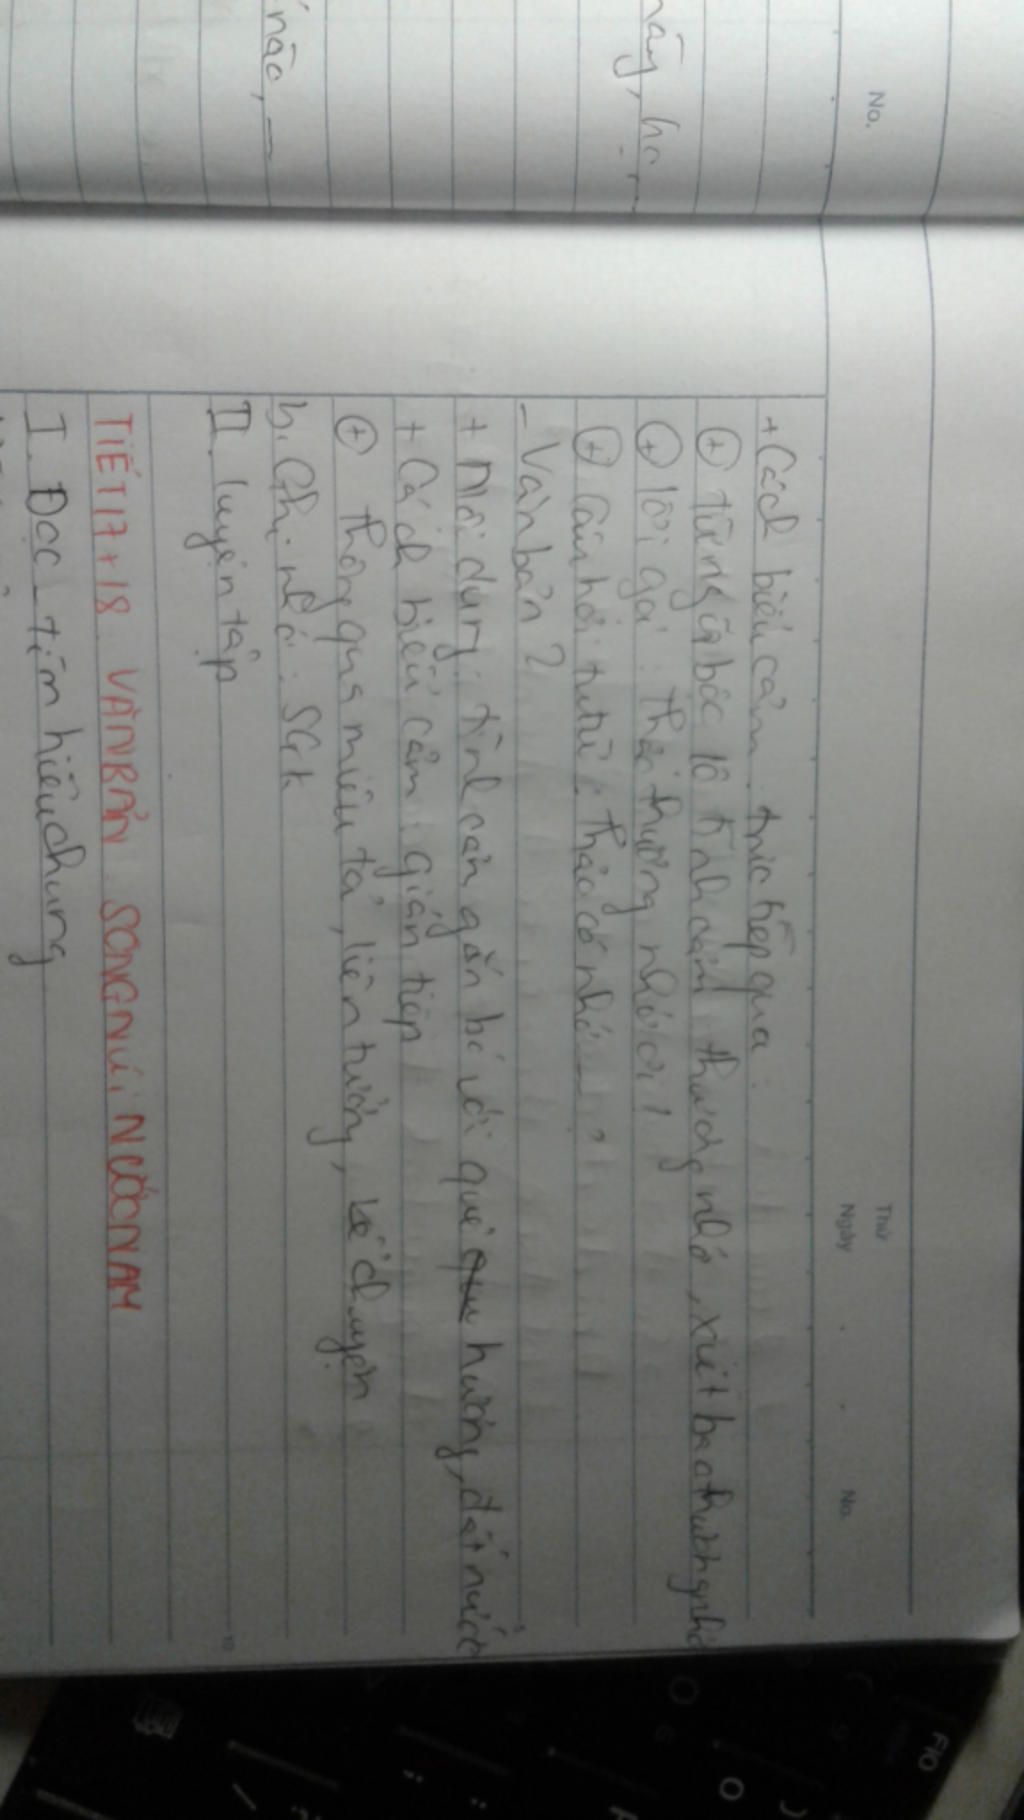 No.
nãy, họ...
não, —
Thứ
Ngày
No.
+ Cách biểu cảm: trực tiếp qua:
⊕ từ ngữ bộc lộ tình cảm thương nhớ, xiết bao thương nhớ
⊕ lời gọi: thảo thương nhớ ơi!
⊕ câu hỏi tu từ: thảo có nhớ...?
- Văn bản 2
+ Nội dung: tình cảm gắn bó với quê hương, đất nước
+ Cách biểu cảm: gián tiếp
⊕ thông qua miêu tả, liên tưởng, kể chuyện
b. Ghi nhớ: SGK
II. luyện tập
TIẾT 17 + 18 VĂN BẢN: SÔNG NÚI NƯỚC NAM
I. Đọc - tìm hiểu chung
F10